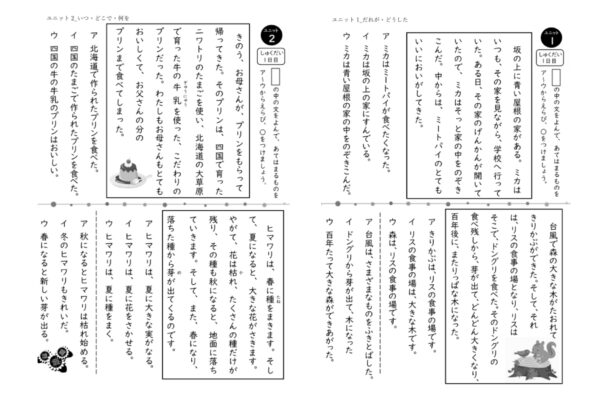 ユニット1_だれが・どうした
ユニット
1
しゅくだい
1日目
の中の文をよんで、あてはまるものを
ア〜ウからえらび、〇をつけましょう。
坂の上に青い屋根の家がある。ミカは
いつも、その家を見ながら、学校へ行って
いた。ある日、その家のげんかんが開いて
いたので、ミカはそっと家の中をのぞき
こんだ。中からは、ミートパイのとても
いいにおいがしてきた。
ア ミカはミートパイが食べたくなった。
イ ミカは坂の上の家にすんでいる。
ウ ミカは青い屋根の家の中をのぞきこんだ。
台風で森の大きな木がたおれて
きりかぶができた。そして、それ
は、リスの食事の場となり、リスは
そこで、ドングリを食べた。そのドングリの
食べ残しから、芽が出て、どんどん大きくなり、
百年後に、またりっぱな木になった。
ア きりかぶは、リスの食事の場です。
イ リスの食事の場は、大きな木です。
ウ 森は、リスの食事の場です。
ア 台風は、さまざまなものをふきとばした。
イ ドングリから芽が出て、木になった
ウ 百年たって大きな森ができあがった。
ユニット2_いつ・どこで・何を
ユニット
2
しゅくだい
1日目
の中の文をよんで、あてはまるものを
ア〜ウからえらび、〇をつけましょう。
きのう、お母さんが、プリンをもらって
帰ってきた。そのプリンは、四国で育った
ニワトリのたまごを使い、北海道の大草原
で育った牛の牛乳を使った、こだわりの
プリンだった。わたしもお母さんもとても
おいしくて、お父さんの分の
プリンまで食べてしまった。
ア 北海道で作られたプリンを食べた。
イ 四国のたまごで作られたプリンを食べた。
ウ 四国の牛の牛乳のプリンはおいしい。
ヒマワリは、春に種をまきます。そし
て、夏になると、大きな花がさきます。
やがて、花は枯れ、たくさんの種だけが
残り、その種も秋になると、地面に落ち
ていきます。そして、また 春になり、
落ちた種から芽が出てくるのです。
ア ヒマワリは、夏に大きな実がなる。
イ ヒマワリは、夏に花をさかせる。
ウ ヒマワリは、夏に種をまく。
ア 秋になるとヒマワリは枯れ始める。
イ 冬のヒマワリもきれいだ。
ウ 春になると新しい芽が出る。